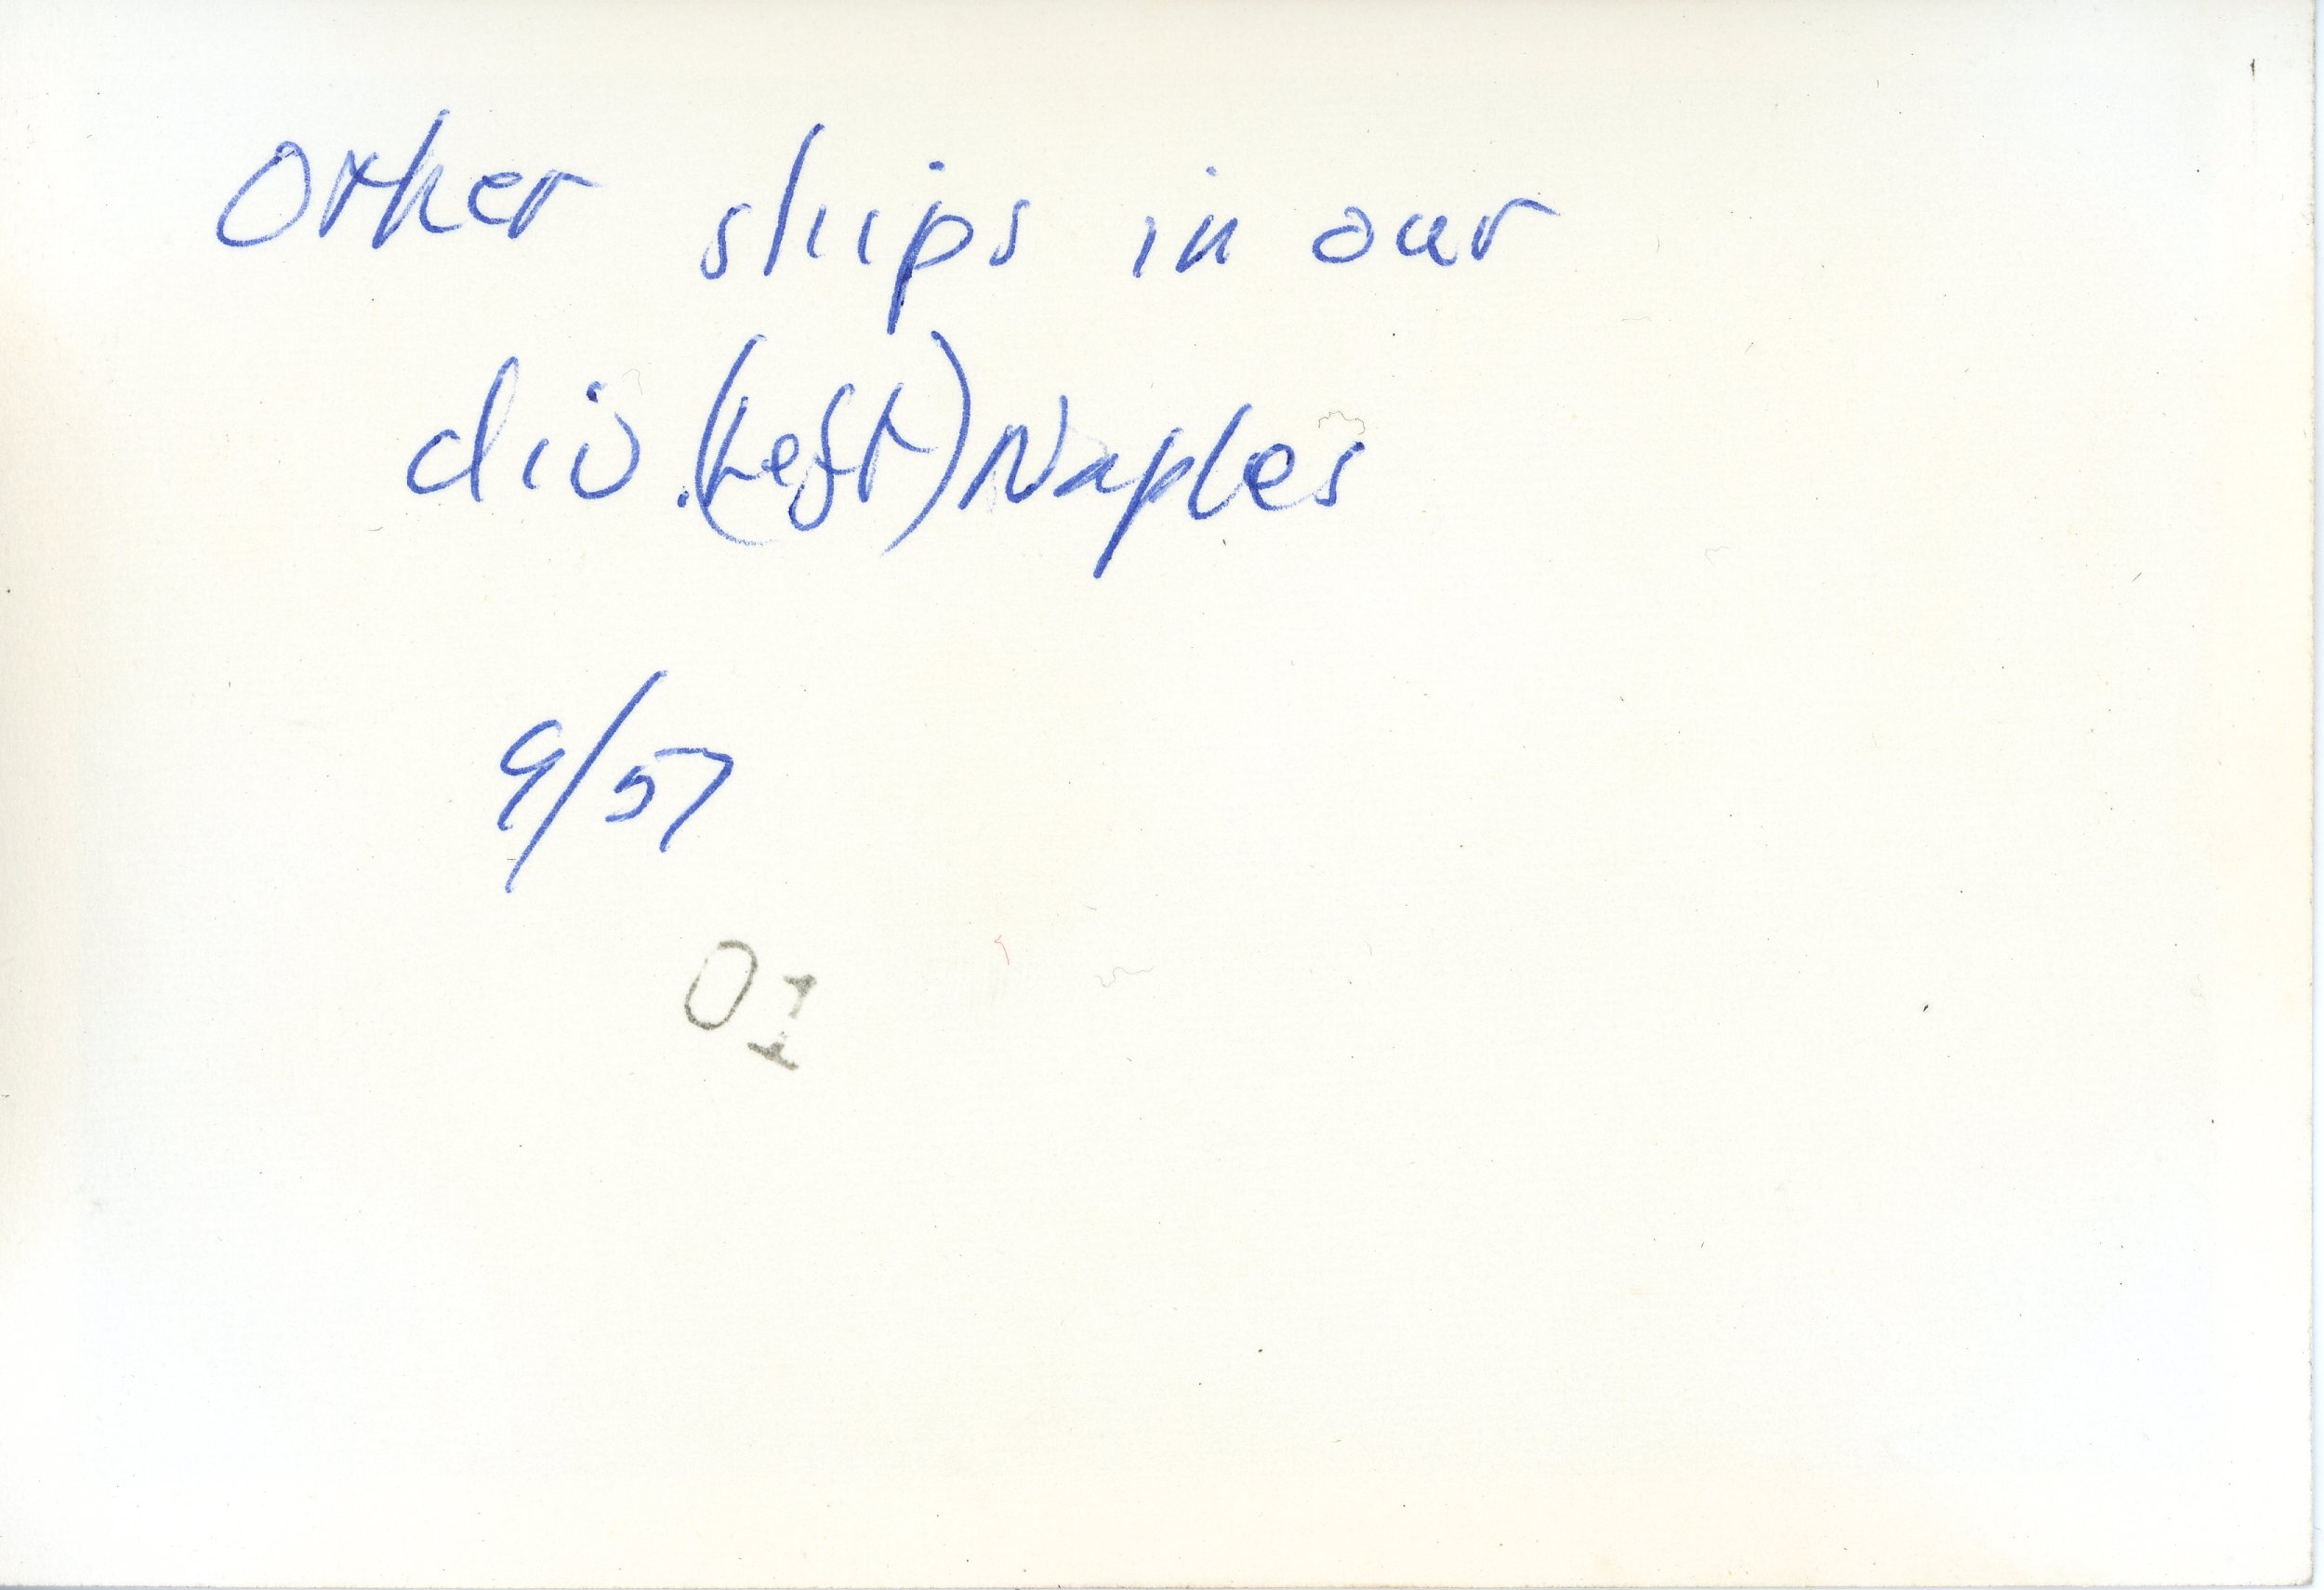 Other ships in our
div. (Left) Naples
9/57
01